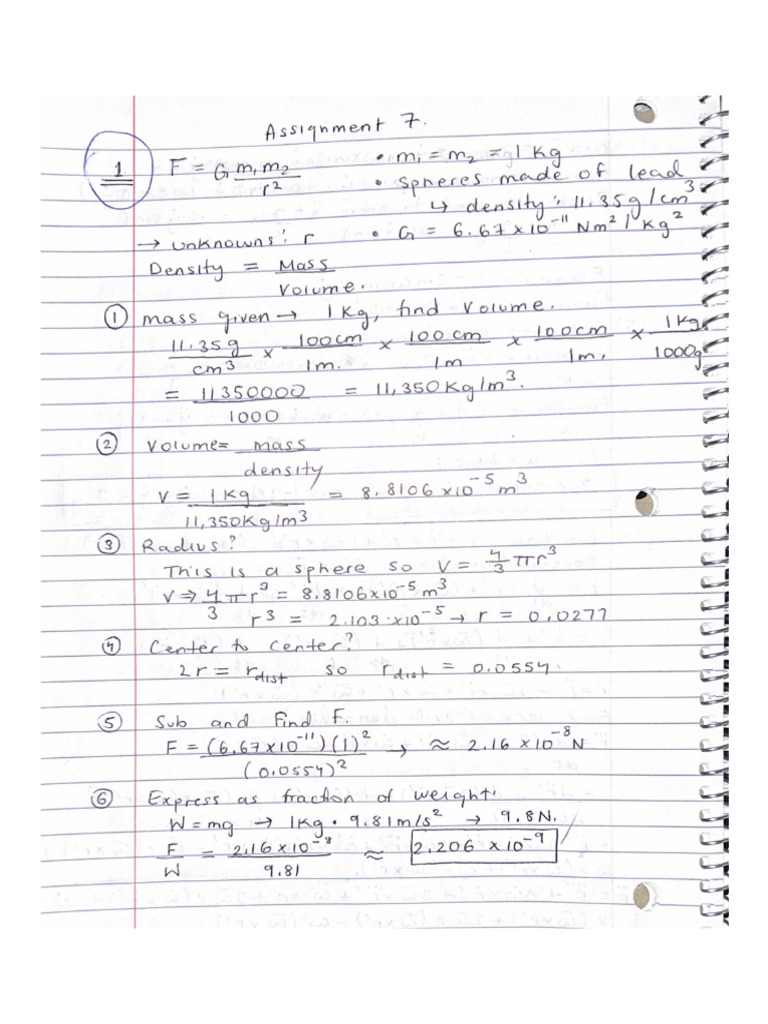 Assignment 7.
1 F = G m₁m₂ / r² • m₁ = m₂ = 1 Kg
• Spheres made of lead
↳ density: 11.35g/cm³
→ unknowns: r • G = 6.67 x 10⁻¹¹ Nm²/Kg²
Density = Mass / Volume.
① mass given → 1Kg, find Volume.
11.35g / cm³ x 100cm / 1m. x 100cm / 1m x 100cm / 1m. x 1Kg / 1000g
= 11350000 / 1000 = 11,350Kg/m³.
② Volume = mass / density
V = 1Kg / 11,350Kg/m³ = 8.8106 x10⁻⁵ m³
③ Radius?
This is a sphere so V = 4/3 πr³
V ⇒ 4/3 πr³ = 8.8106x10⁻⁵ m³
r³ = 2.103 x10⁻⁵ → r = 0.0277
④ Center to center?
2r = r_dist so r_dist = 0.0554.
⑤ Sub and Find F.
F = (6.67x10⁻¹¹)(1)² / (0.0554)² , ≈ 2.16 x 10⁻⁸ N
⑥ Express as fraction of weight:
W = mg → 1Kg • 9.81m/s² → 9.8N.
F / W = 2.16x10⁻⁸ / 9.81 ≈ 2.206 x10⁻⁹